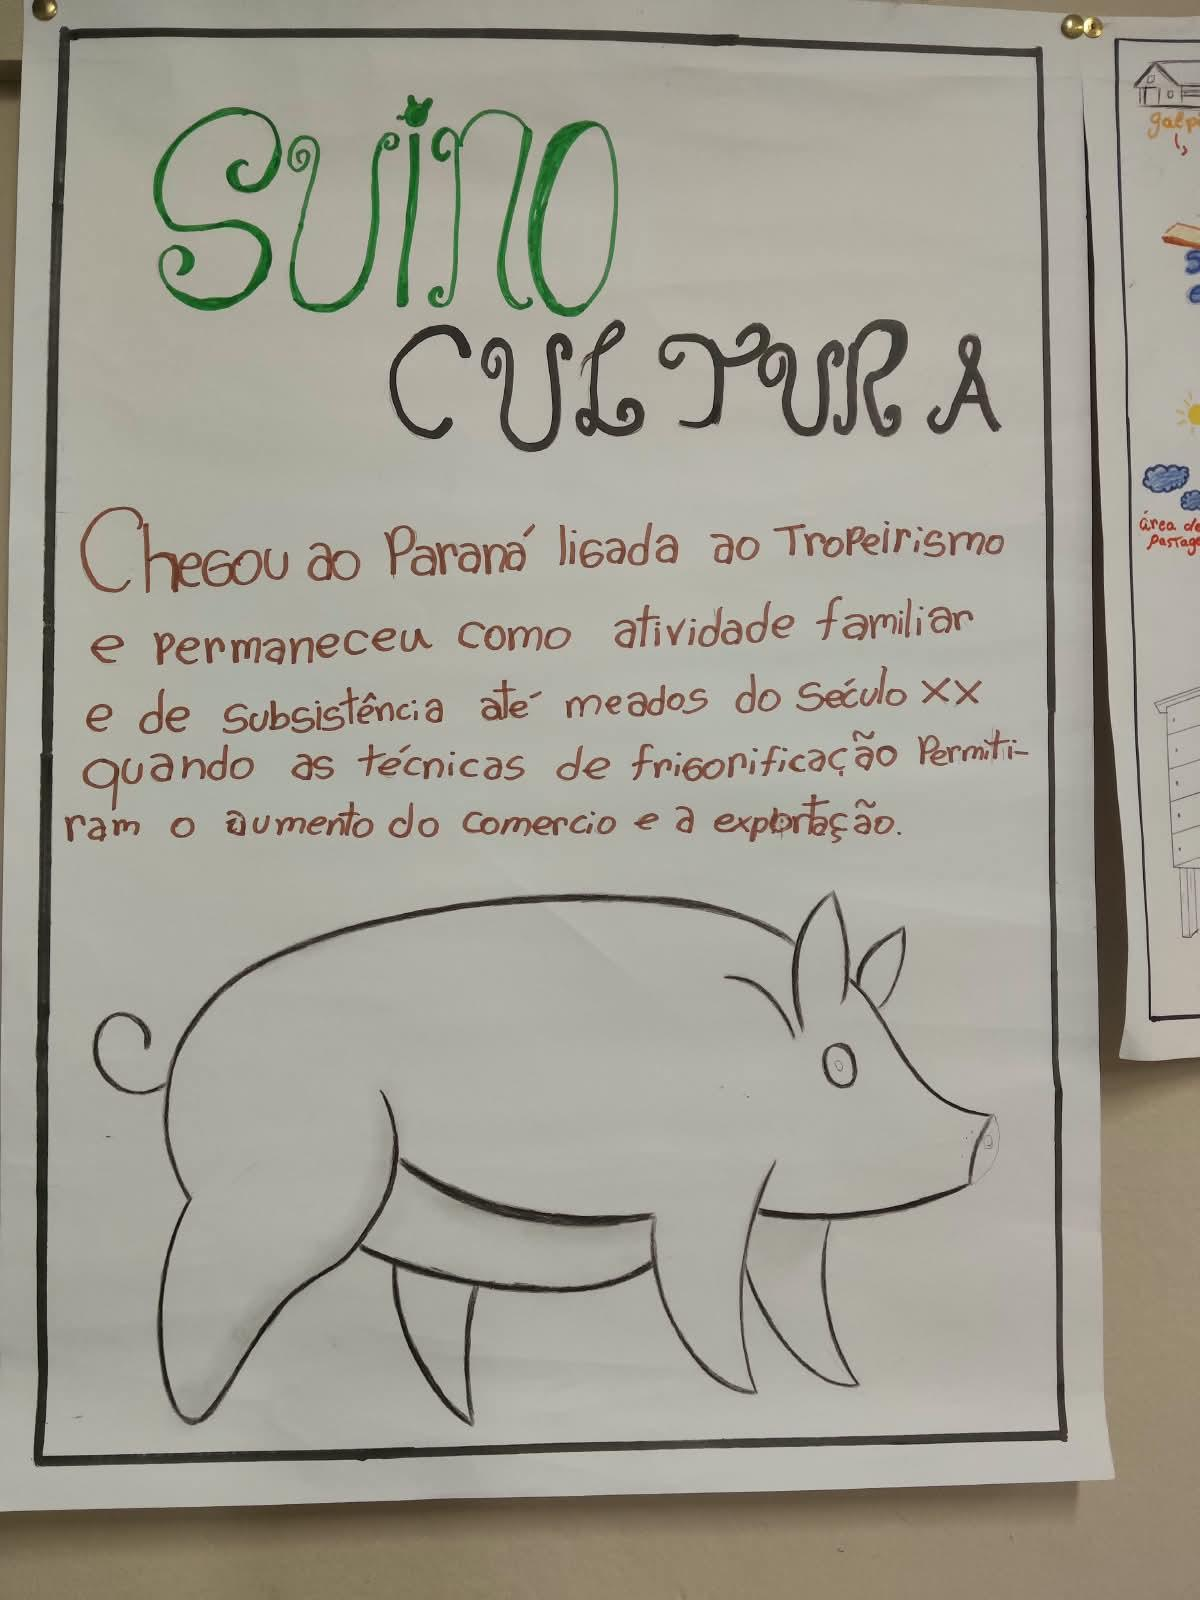 SUINO
CULTURA
Chegou ao Paraná ligada ao Tropeirismo
e permaneceu como atividade familiar
e de subsistência até meados do século XX
quando as técnicas de frigorificação permiti-
ram o aumento do comercio e a exportação.
área de